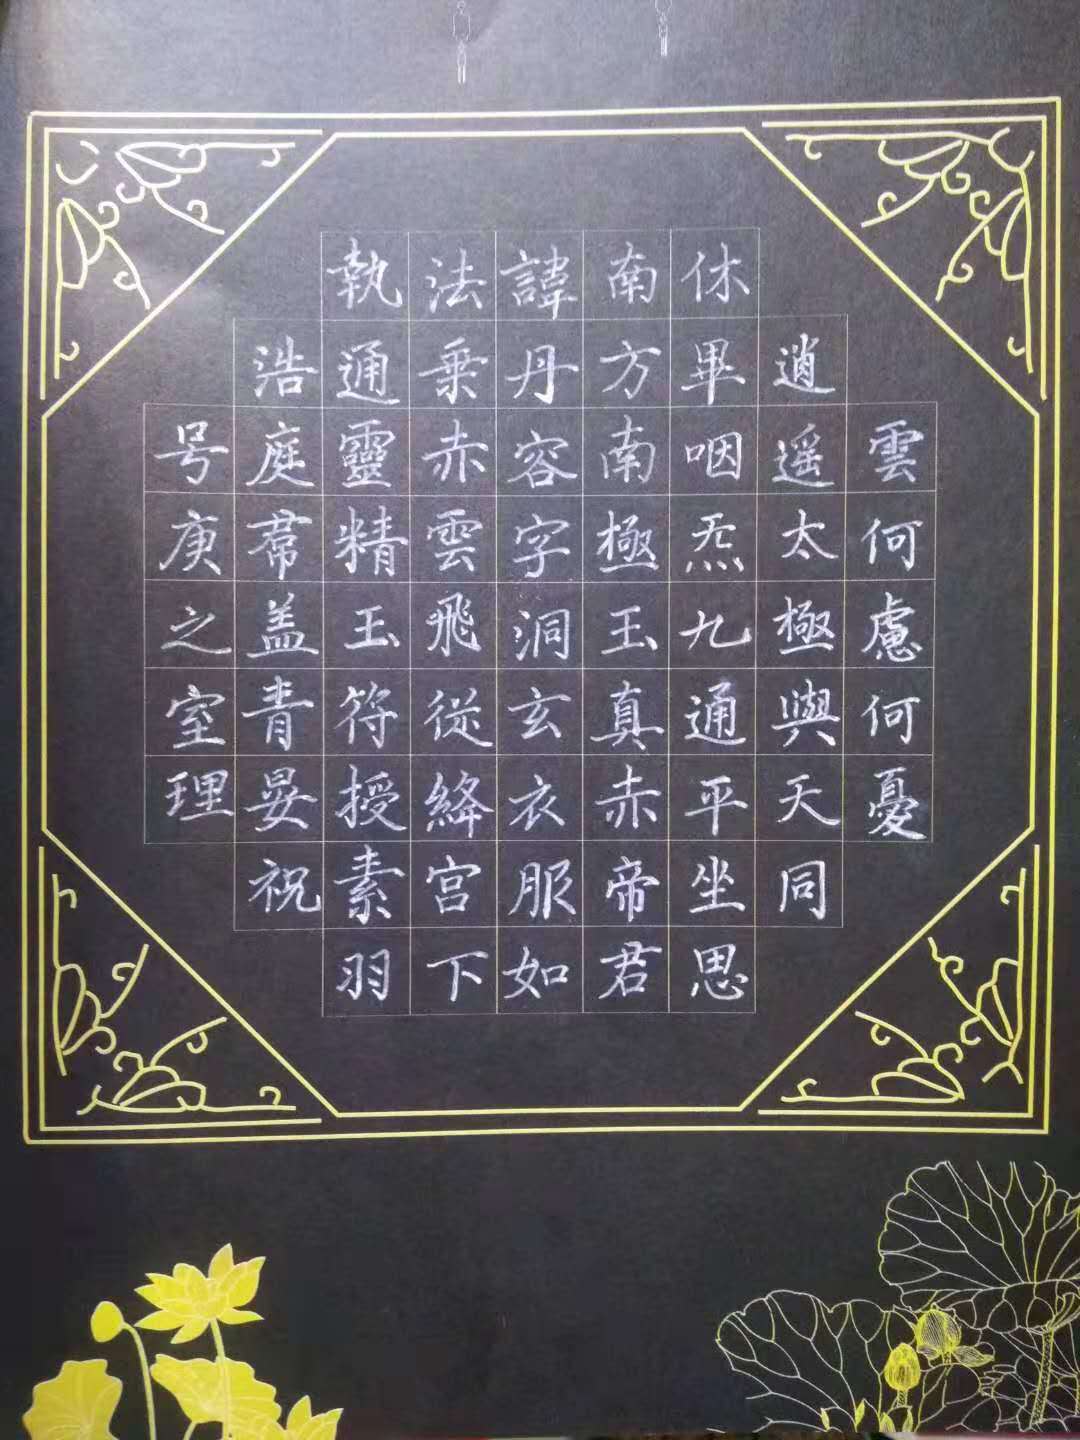 雲何慮何憂
逍遥太極與天同
休畢咽炁九通平坐思
南方南極玉真赤帝君
諱丹容字洞玄衣服如
法乗赤雲飛從絳宫下
執通靈精玉符授素羽
浩庭盖青晏祝
号庚之室理